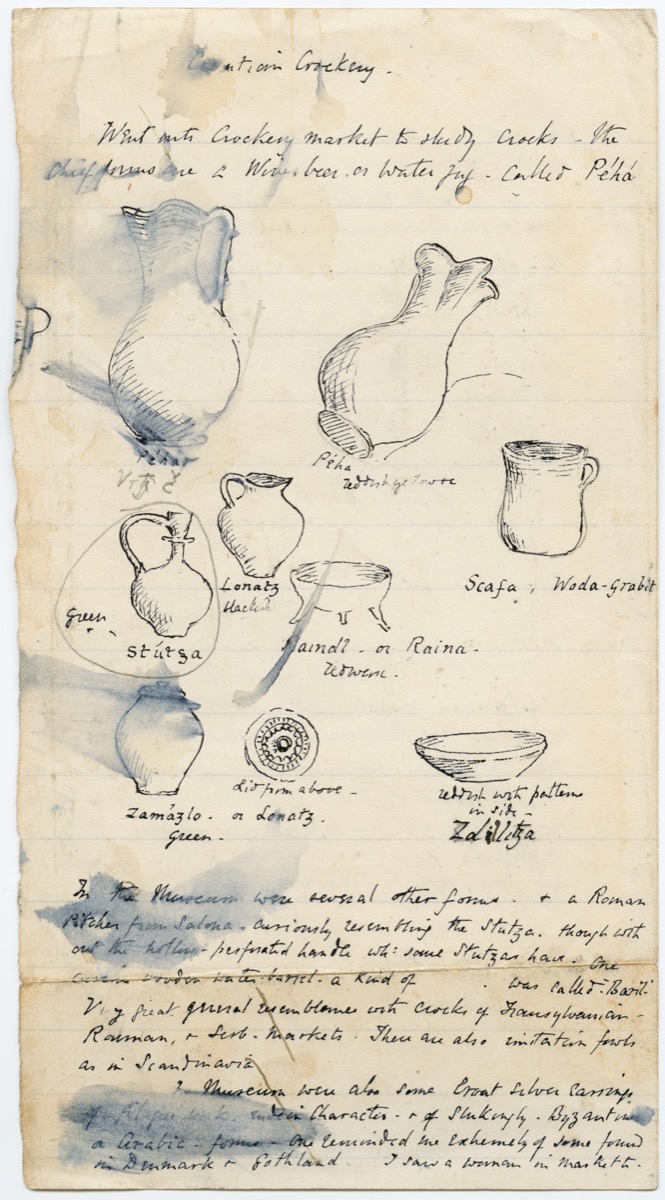 Croatian Crockery.
Went into Crockery market to study crocks - the
chief forms are a Wine, beer or Water jug - called Péhá
Péhar
Péha
reddish yellow
Lonatz
blackish
Scafa, Woda-Grabit
Green
Stútza
Raindl - or Raina -
redware.
Lid from above -
reddish with patterns
in side -
Zamázlo - or Lonatz.
Green -
Zdillitza
In the Museum were several other forms - + a Roman
Pitcher from Salona - curiously resembling the Stutza. though with
out the hollow - perforated handle wh: some Stutzas have. One
wooden water-barrel - a kind of was called - Baril
Very great general resemblance with crocks of Transylvanian -
Rouman, + Serb - Markets. There are also imitation fowls
as in Scandinavia
Museum were also some Croat silver Earrings
of filagree work in Character - + of Strikingly - Byzantine
or Arabic - forms - One reminded me extremely of some found
in Denmark + Gothland I saw a woman in market